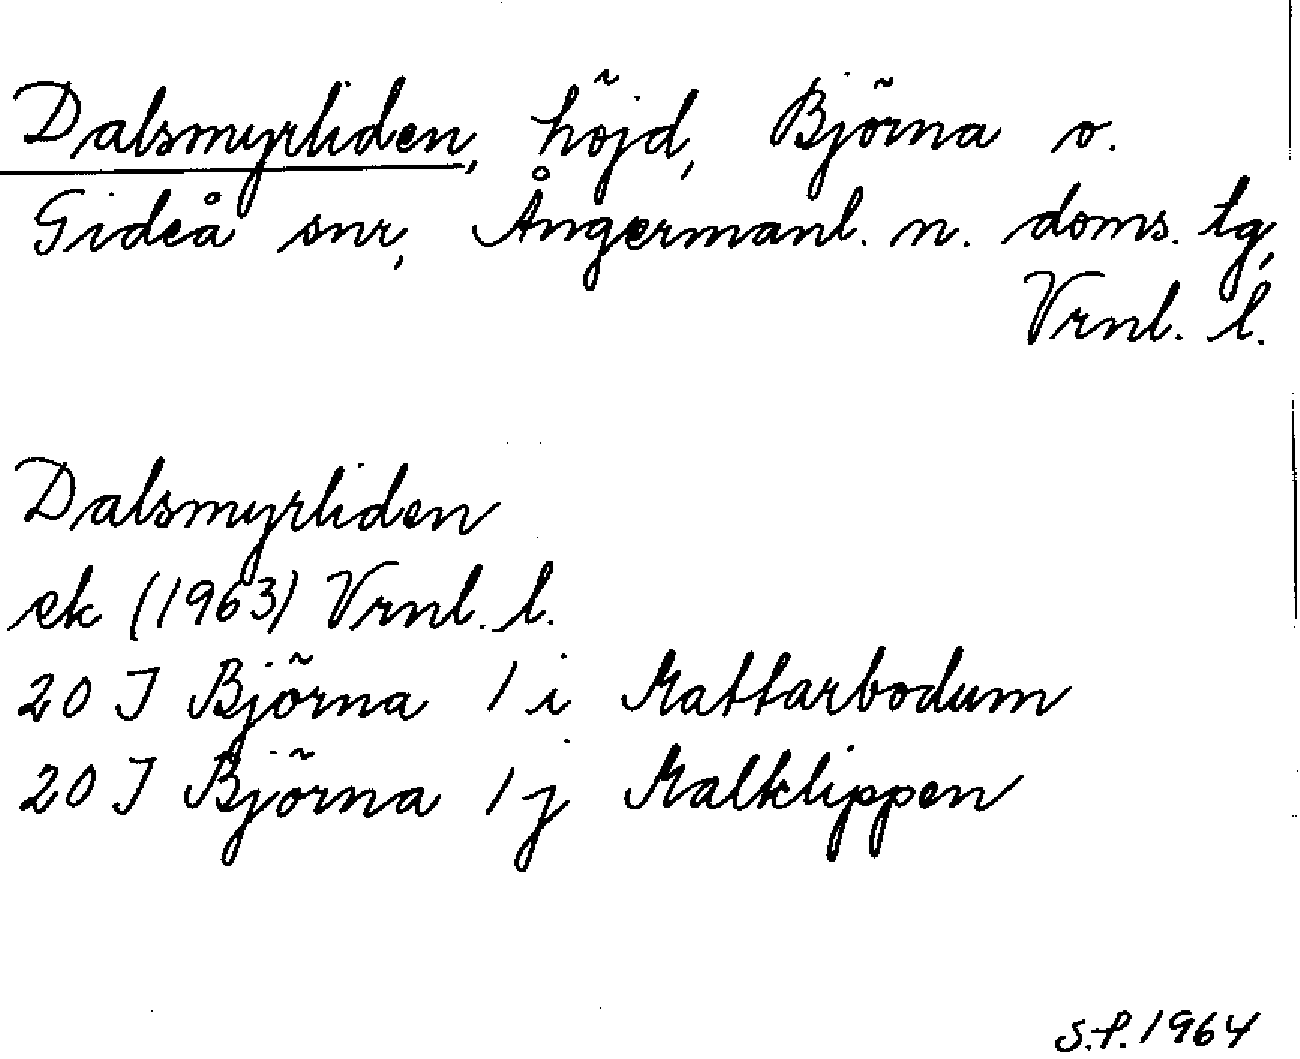 Dalsmyrliden, höjd, Björna o.
Gideå snr, Ångermanl. n. doms. tg,
Vrnl. l.
Dalsmyrliden
ek (1963) Vrnl. l.
20 I Björna 1 i Mattarbodum
20 I Björna 1 j Malklippen
S.P. 1964